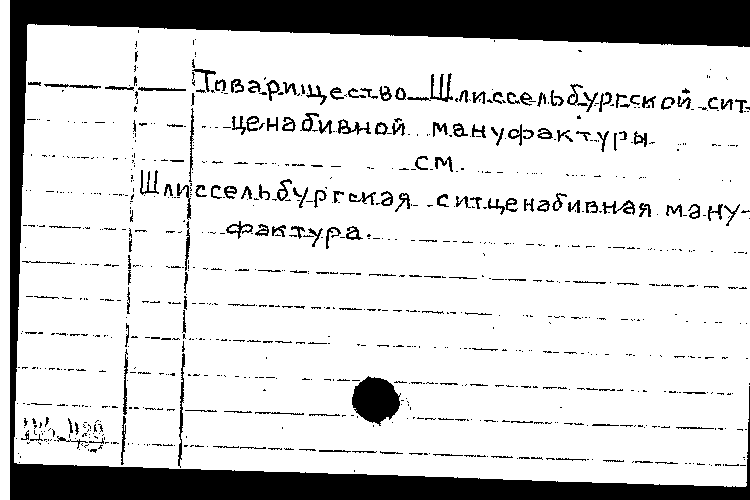 Товарищество Шлиссельбургской сит-
ценабивной мануфактуры
см.
Шлиссельбургская ситценабивная ману-
фактура.